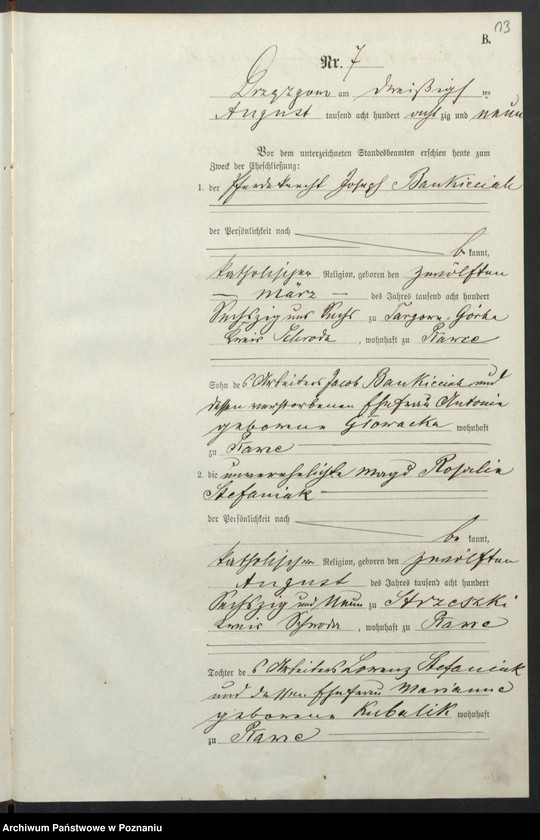 13
B.
Nr. 7
am dreißigsten
August tausend acht hundert achtzig und neun
Vor dem unterzeichneten Standesbeamten erschien heute zum
Zweck der Eheschließung:
1. der Pferdeknecht Joseph
der Persönlichkeit nach
bekannt,
katholischer Religion, geboren den zwölften
März des Jahres tausend acht hundert
Sechszig und Sechs zu Targowa-Górka
Kreis Schroda, wohnhaft zu
Sohn des Arbeiters Jacob und
dessen verstorbenen Ehefrau Antonie
geborene Głowacka wohnhaft
zu
2. die unverehelichte Magd Rosalie
Stefaniak
der Persönlichkeit nach
bekannt,
katholischer Religion, geboren den zwölften
August des Jahres tausend acht hundert
Sechszig und Neun zu Strzeszki
Kreis Schroda, wohnhaft zu
Tochter des Arbeiters Lorenz Stefaniak
und dessen Ehefrau Marianne
geborene Kubalik wohnhaft
zu
Archiwum Państwowe w Poznaniu